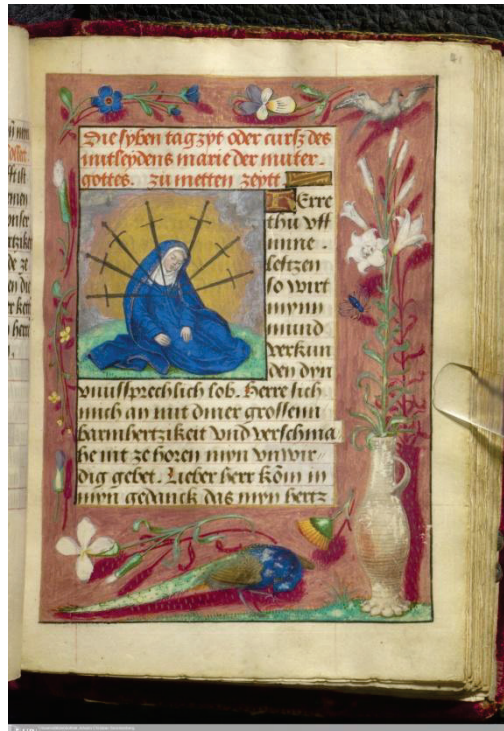 Die syben tagzyt oder curß des
mitleydens marie der muter
gottes. zu metten zeytt
HErre
thu vff
mine
lefftzen
so wirt
mynn
mund
verkun
den dyn
vnussprechlich lob. Herre sich
mich an mit diner grossenn
barmhertzikeit vnd verschma
he nit ze horen myn vnwir
dig gebet. Lieber herr kom in
myn gedanck das myn hertz